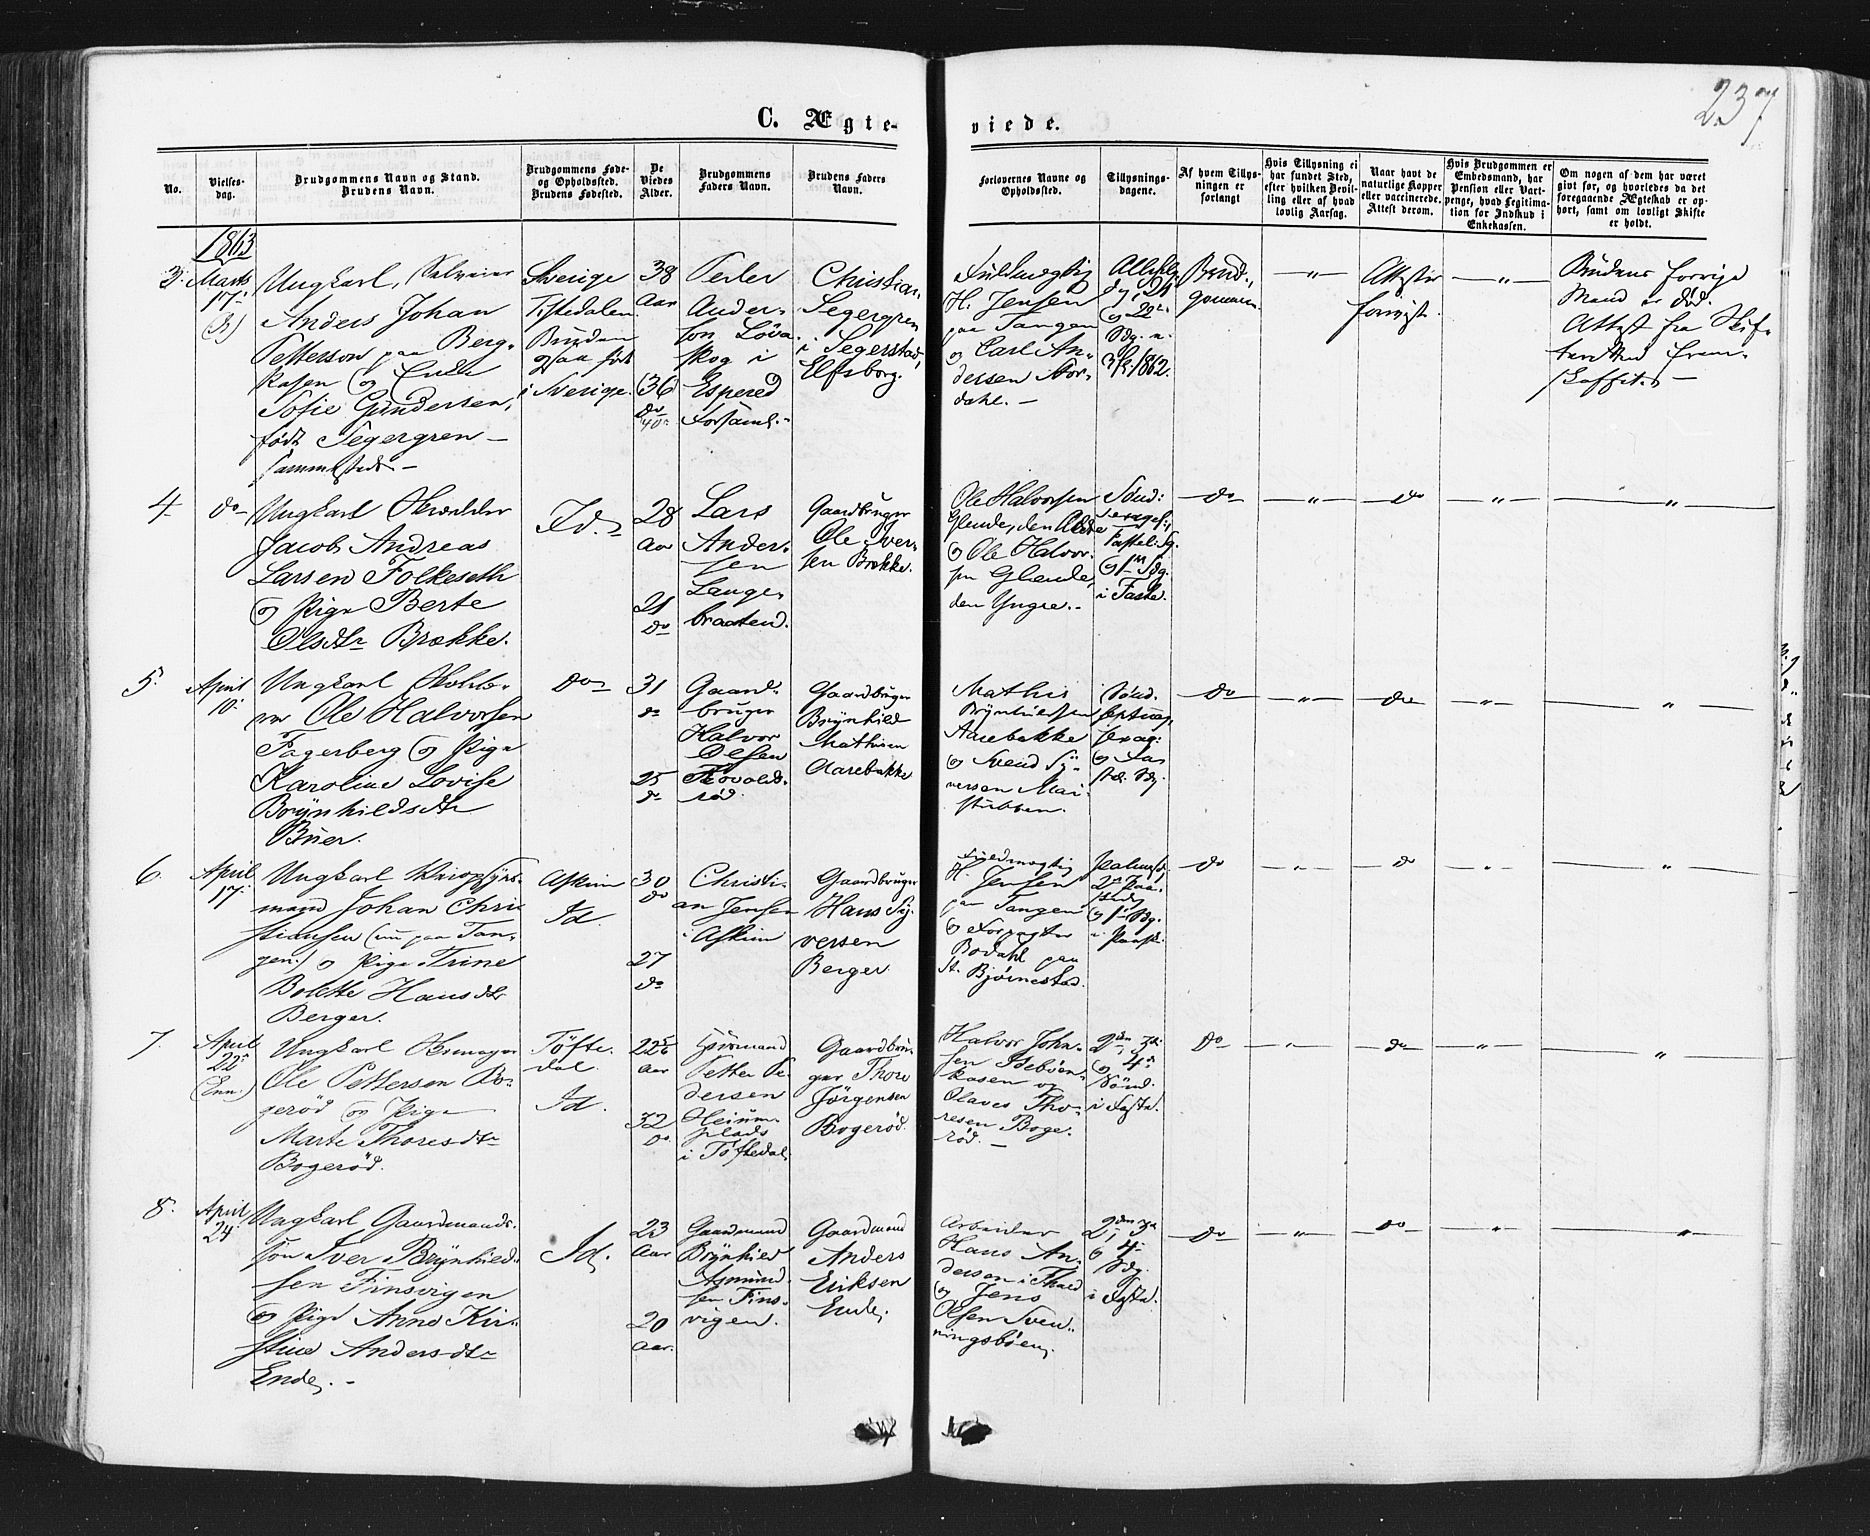 237
C. Ægte-
viede.
No.
Vielses-
dag.
Brudgommens Navn og Stand.
Brudens Navn.
Brudgommens Føde-
og Opholdssted.
Brudens Fødested.
De
Viedes
Alder.
Brudgommens
Faders Navn.
Brudens Faders
Navn.
Forlovernes Navne og
Opholdssted.
Tillysnings-
dagene.
Af hvem Tillys-
ningen er
forlangt
Hvis Tillysning ei
har fundet Sted,
efter hvilken Bevil-
ling eller af hvad
lovlig Aarsag.
Naar havt de
naturlige Kopper
eller vaccinerede.
Attest derom.
Hvis Brudgommen er
Embedsmand, har
Pension eller Vart-
penge, hvad Legitima-
tion for Indskud i
Enkekassen.
Om nogen af dem har været
gift før, og hvorledes da det
foregaaende Ægteskab er op-
hørt, samt om lovligt Skifte
er holdt.
1863
3.
Marts
17.
Ungkarl,
Anders Johan
Petterson paa Berg-
kasen og Enke
Sofie Gundersen,
født Segergren -
sammesteds -
Sverige
Tistedalen
Bruden
ogsaa født
i Sverige.
38
Aar
36
do
40
Peter
Ander-
son Löva-
skog i
Espered
Forsaml.
Christian
Segergren
i Segerstad,
Elfsborg.
Fuldmægtig
H. Jensen
paa Tangen
og Carl An-
dersen Nor-
dahl. -
1862.
Brud-
gommen
- " -
Attester
foreviist.
- " -
Brudens forrige
Mand er død.
Attest fra Skif-
teretten frem-
skaffet. -
4.
do
Ungkarl Skrædder
Jacob Andreas
Larsen Folkeseth
og Pige Berte
Olsdtr Brække.
Id.
28
Aar
21
do
Lars
Ander-
sen
Lange-
braaten.
Gaardbruger
Ole Iver-
sen Brække.
Ole Halvorsen
Glende, den Ældre
og Ole Halvor-
sen Glende,
den Yngre. -
Sønd:
Fastel. Sg.
og 1ste Sdg.
i Faste.
do
"
do
"
"
5.
April
10.
Ungkarl
Ole Halvorsen
Fagerberg og Pige
Karoline Lovise
Brynhildsdtr
Buer.
do
31
do
25
do
Gaard-
bruger
Halvor
Olsen
Torvalds-
rød.
Gaardbruger
Brynhild
Mathisen
Aarebakke
Mathis
Brynhildsen
Aarebakke
og Svend Sy-
versen Mai-
stubben.
Sønd.
og Fas-
do
"
do
"
"
6.
April
17.
Ungkarl
mand Johan Chri-
stiansen (nu paa Tan-
gen) og Pige Trine
Bolette Hansdtr
Berger.
Askim
Id.
30
do
27
do
Christi-
an Jensen
i Askim
Gaardbruger
Hans Sy-
versen
Berger
Fuldmægtig
H. Jensen
paa Tangen
og Forpagter
Bodahl paa
St. Bjørnestad.
og 1ste Sdg.
do
"
do
"
"
7.
April
22.
Ungkarl
Ole Pettersen Bo-
gerød og Pige
Marte Thoresdtr
Bogerød.
Tøfte-
dal.
Id.
Aar
32
do
Petter Pe-
dersen
i Töftedal
Gaardbru-
ger Thore
Jørgensen
Bogerød.
Halvor John-
sen Idebøen-
kasen og
Olaves Tho-
resen Boge-
rød. -
2den, 3die
og 4de
Sønd.
i Faste.
do
"
do
"
"
8.
April
24.
Ungkarl Gaardmands-
søn Iver Brynhild-
sen Finsvigen
og Pige Anne Kir-
stine Andersdtr
Ende. -
Id
23
Aar
20
Aar.
Gaardmand
Brynhild
Asmund-
sen Fins-
vigen.
Gaardmand
Anders
Eriksen
Ende.
Arbeider
Hans An-
dersen i
og Jens
Olsen Sven-
ningsbøen.
2den, 3die
og 4de
Sdg.
i Faste.
do
"
do
"
"